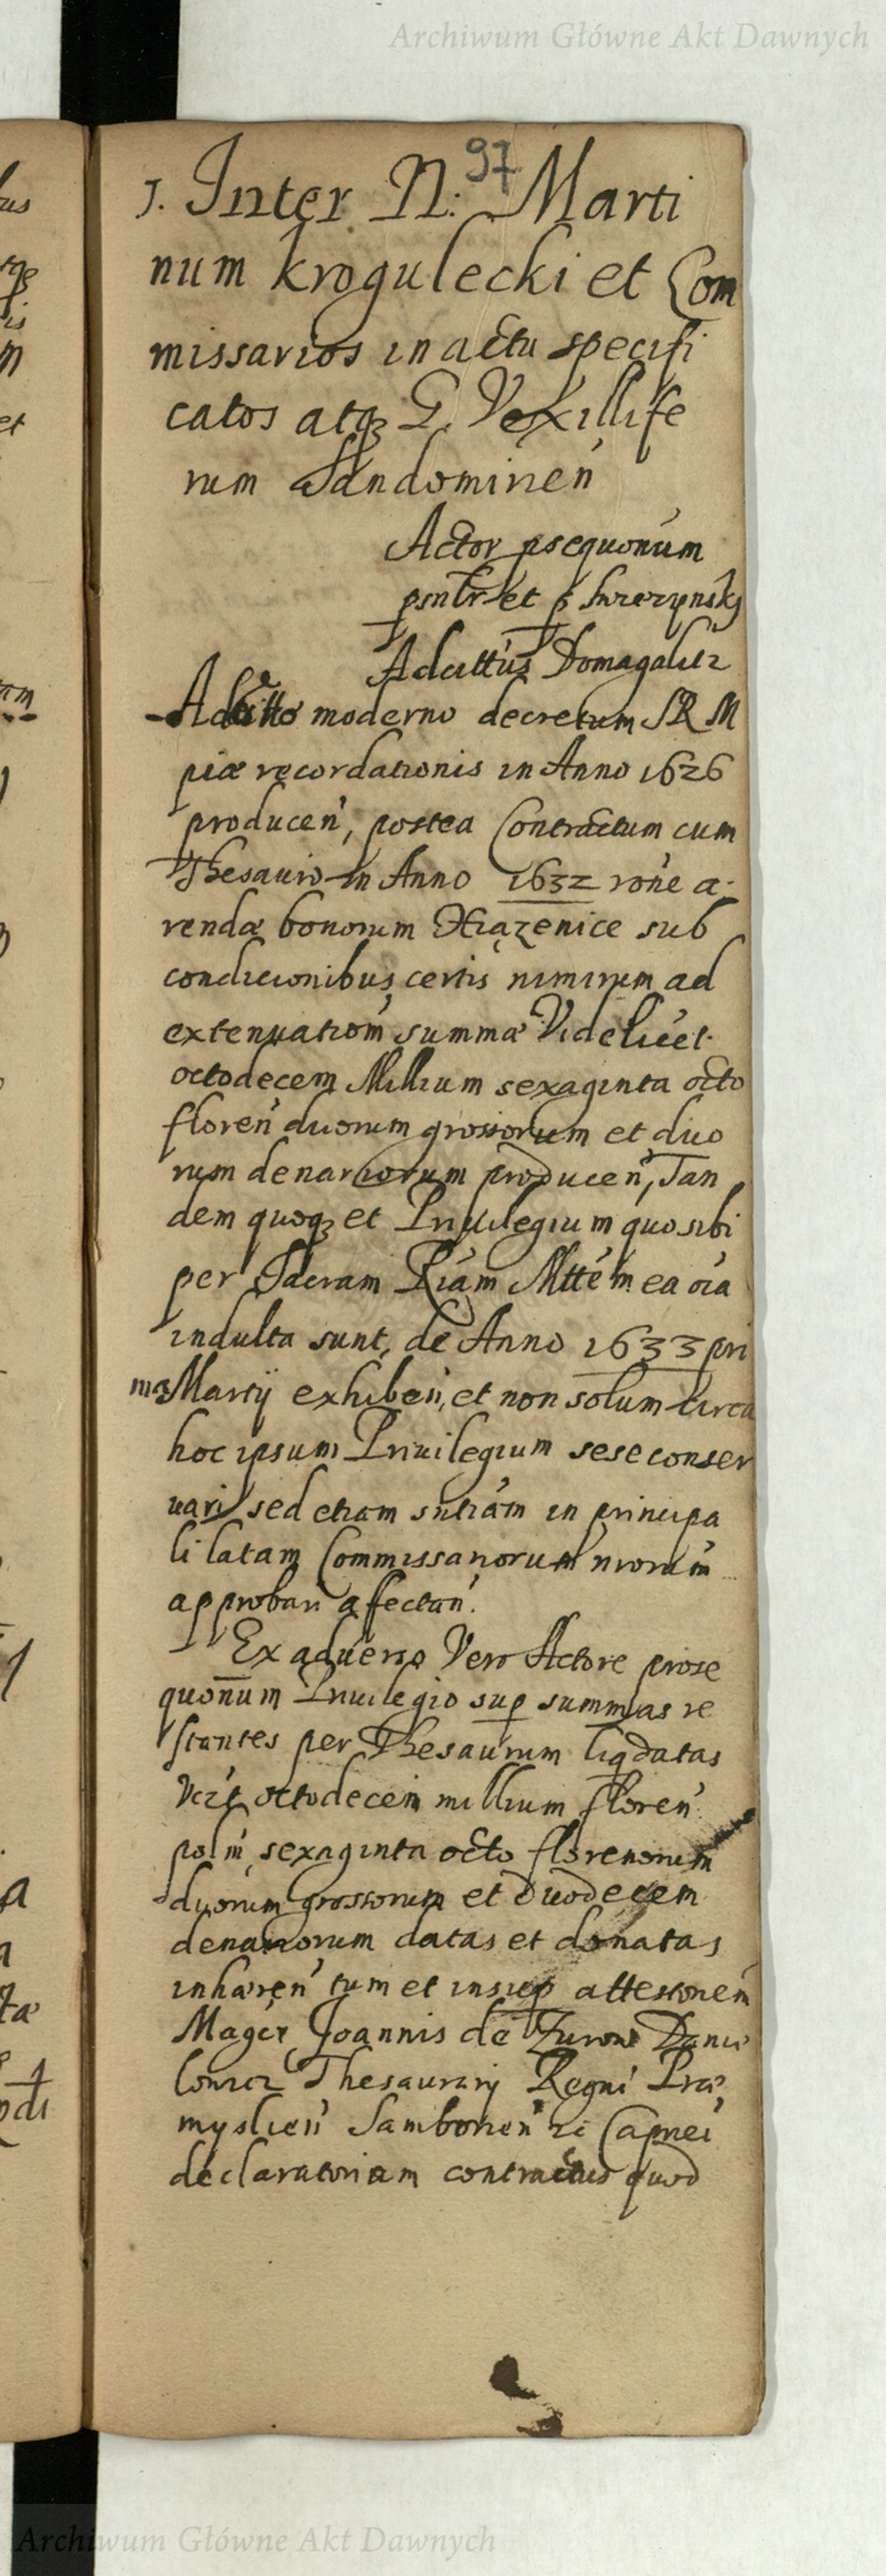 Archiwum Główne Akt Dawnych
97
1. Inter N: Marti
num krogulecki et Com
missarios in actu specifi
catos atq3 G. Vexillife
rum Sandominen
Actor psequonum
psnlr et p
Adcittus Domagalicz
moderno decretum SRM
piæ recordationis in Anno 1626
producen, postea Contractum cum
Thesauro in Anno 1632 rone a-
rendæ bonorum Xiązenice sub
condicionibus certis nimirum ad
extenuatiom summæ Videlicet
octodecem Millium sexaginta octo
floren duorum grossorum et duo
rum denariorum producen, Tan
dem quoq3 et Privilegium quo sibi
per Sacram Riam Mttem ea oia
indulta sunt, de Anno 1633 pri
ma Martij exhiben, et non solum circa
hoc ipsum Priuilegium sese conser
uari sed etiam sntiam in principa
li latam Commissariorum nrorum
approbari affectan.
Ex aduerso Vero Actore prose
quonum Priuilegio sup summas re
stantes per Thesaurum liqdatas
Vizt octodecem millium floren
polm sexaginta octo florenorum
duorum grossorum et duodecem
denariorum datas et donatas
inhæren tum et insup attestonem
Magci Joannis de Zurow Dani
lowicz Thesaurarij Regni Præ
myslien Samborien zc Capnei
declaratoriam contractus quod
Archiwum Główne Akt Dawnych